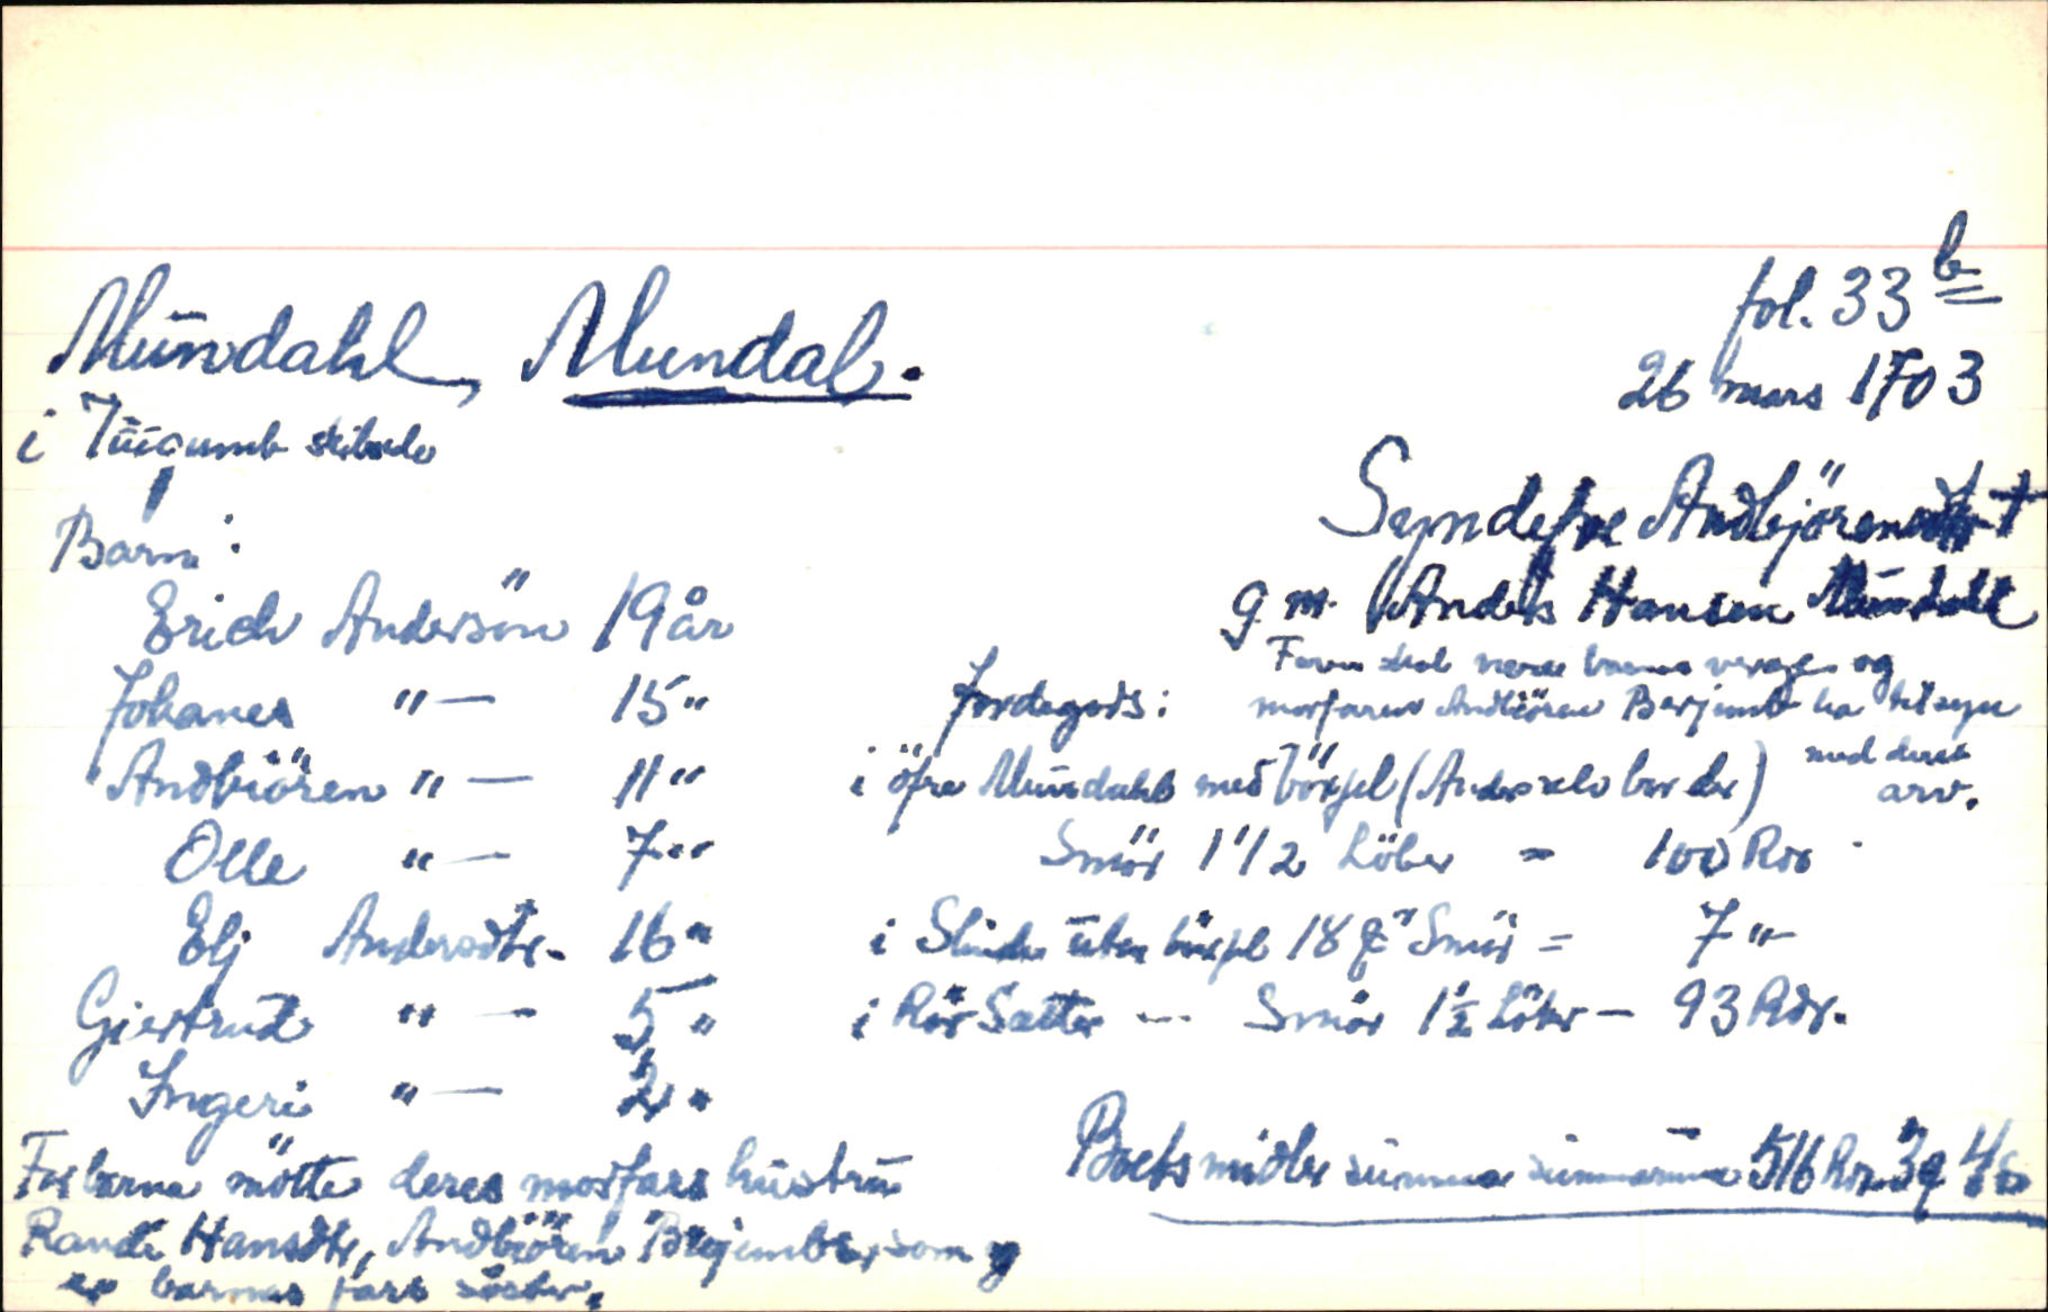 fol. 33 b
Mündahl, Mundal.
26 mars 1703
i Jüigumb skibrede
Syndefve Andbjörensdtr †
Barn:
g. m. Anders Hansen Mündahl
Erich Andersön 19 år
Faren skal være barnas verge og
Johanes "— 15 "
Jordegods: morfaren Andbiören Berjumb ha tilsyn
med deres
Andbiören "— 11 "
i öfre Mündahl med böxsel (Anders selv bor der) arv.
Olle "— 7 "
Smör 1 1/2 Löber = 100 Rdr
Elj Andersdtr. 16 "
i Slinde uten böxsel 18 Smör = 7 "
Giertrud "— 5 "
i Rör Sætter --- Smör 1 1/2 Löber — 93 Rdr.
Ingeri "— 2 "
For barna mötte deres morfars hüstrü
Boets midler summa summarum 516 Rdr 3 q 4 s
Randi Hansdtr, Andbiören Brejumbs, som
er barnas fars söster.